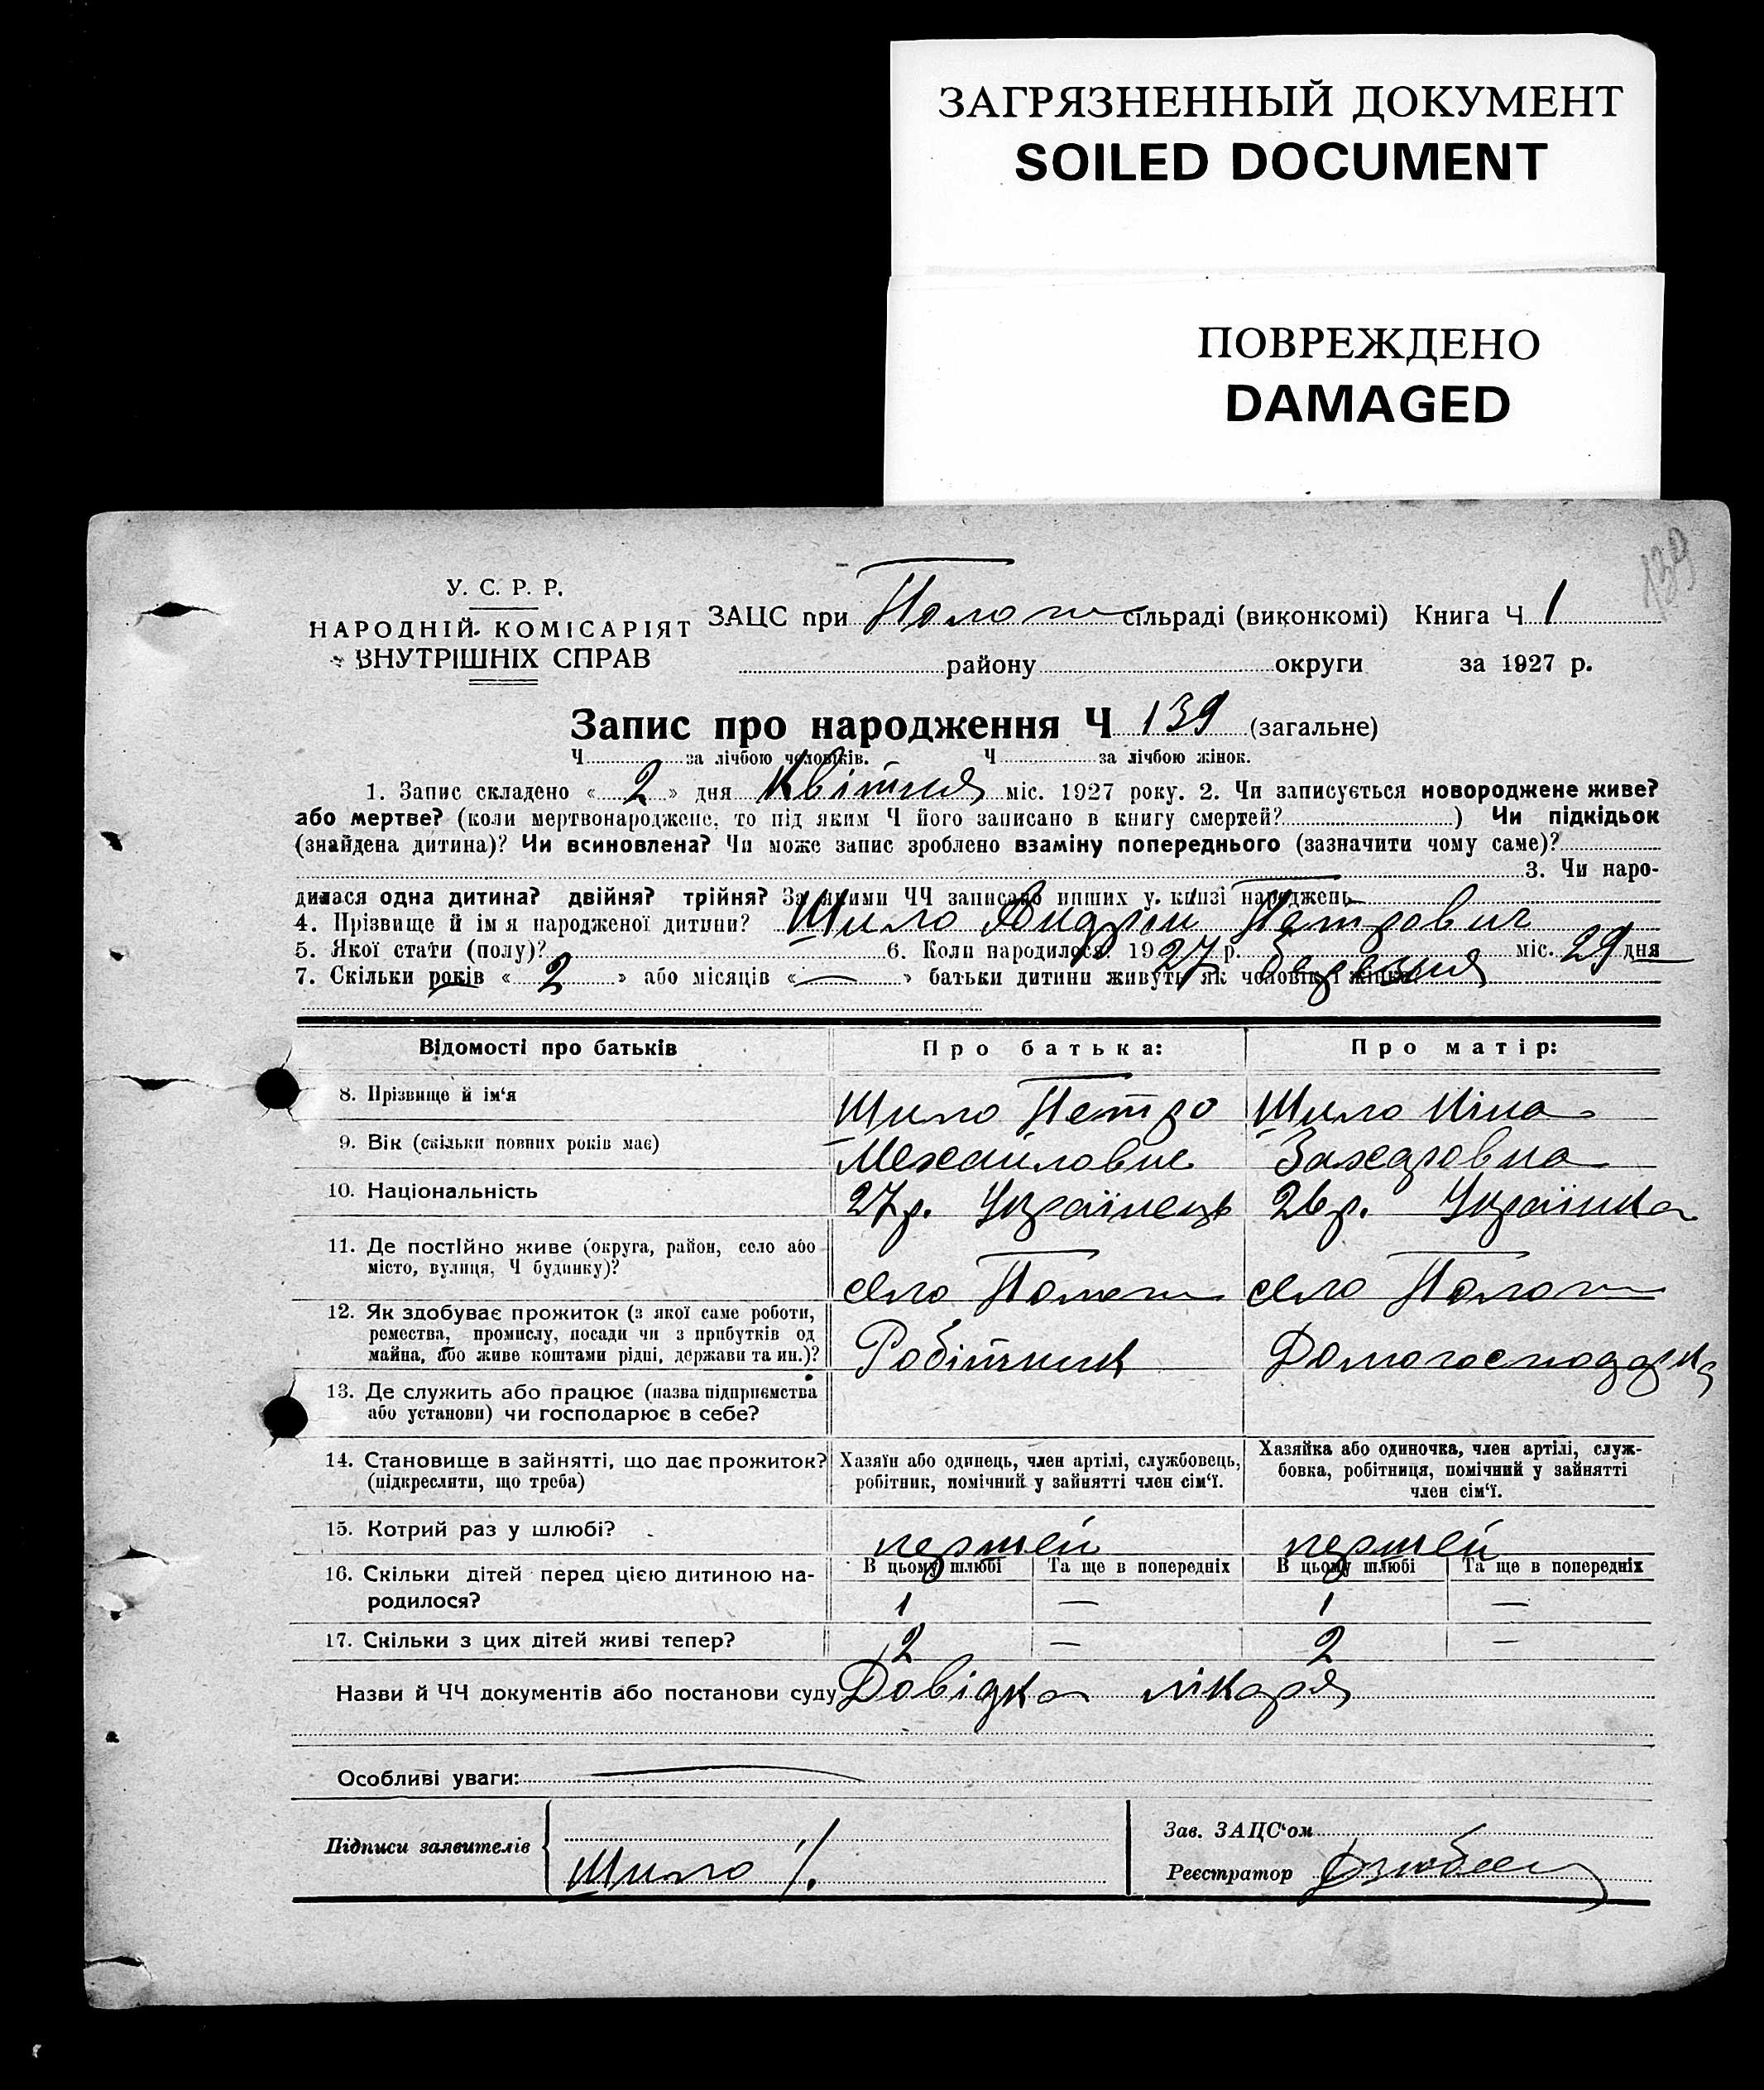 ЗАГРЯЗНЕННЫЙ ДОКУМЕНТ
SOILED DOCUMENT
ПОВРЕЖДЕНО
DAMAGED
139
У. С. Р. Р.
НАРОДНІЙ КОМІСАРІЯТ
ВНУТРІШНІХ СПРАВ
ЗАЦС при Пологи сільраді (виконкомі) Книга Ч 1
району округи за 1927 р.
Запис про народження Ч 139 (загальне)
Ч за лічбою чоловіків. Ч за лічбою жінок.
1. Запис складено « 2 » дня Квітня міс. 1927 року. 2. Чи записується новороджене живе?
або мертве? (коли мертвонароджене, то під яким Ч його записано в книгу смертей? ) Чи підкідьок
(знайдена дитина)? Чи всиновлена? Чи може запис зроблено взаміну попереднього (зазначити чому саме)?
3. Чи наро-
дилася одна дитина? двійня? трійня? За якими ЧЧ записано инших у книзі народжень
4. Прізвище й імя народженої дитини? Шило Андрій Петрович
5. Якої стати (полу)? 6. Коли народилося? 1927 р. березня міс. 29 дня
7. Скільки років « 2 » або місяців « — » батьки дитини живуть як чоловік і жінка?
Відомості про батьків Про батька: Про матір:
8. Прізвище й ім'я Шило Петро Шило Ніна
9. Вік (скільки повних років має) Захаровна
10. Національність 27р. Українець 26р. Українка
11. Де постійно живе (округа, район, село або
місто, вулиця, Ч будинку)? село Пологи село Пологи
12. Як здобуває прожиток (з якої саме роботи,
ремества, промислу, посади чи з прибутків од
майна, або живе коштами рідні, держави та ин.)? Робітник Домогосподарка
13. Де служить або працює (назва підприємства
або установи) чи господарює в себе?
14. Становище в зайнятті, що дає прожиток?
(підкреслити, що треба)
Хазяїн або одинець, член артілі, службовець,
робітник, помічний у зайнятті член сім'ї.
Хазяйка або одиночка, член артілі, служ-
бовка, робітниця, помічний у зайнятті
член сім'ї.
15. Котрий раз у шлюбі? першей першей
В цьому шлюбі Та ще в попередніх В цьому шлюбі Та ще в попередніх
16. Скільки дітей перед цією дитиною на-
родилося? 1 — 1 —
17. Скільки з цих дітей живі тепер? 2 — 2 —
Назви й ЧЧ документів або постанови суду Довідка лікаря
Особливі уваги: —
Підписи заявителів Шило
Зав. ЗАЦС'ом
Реєстратор